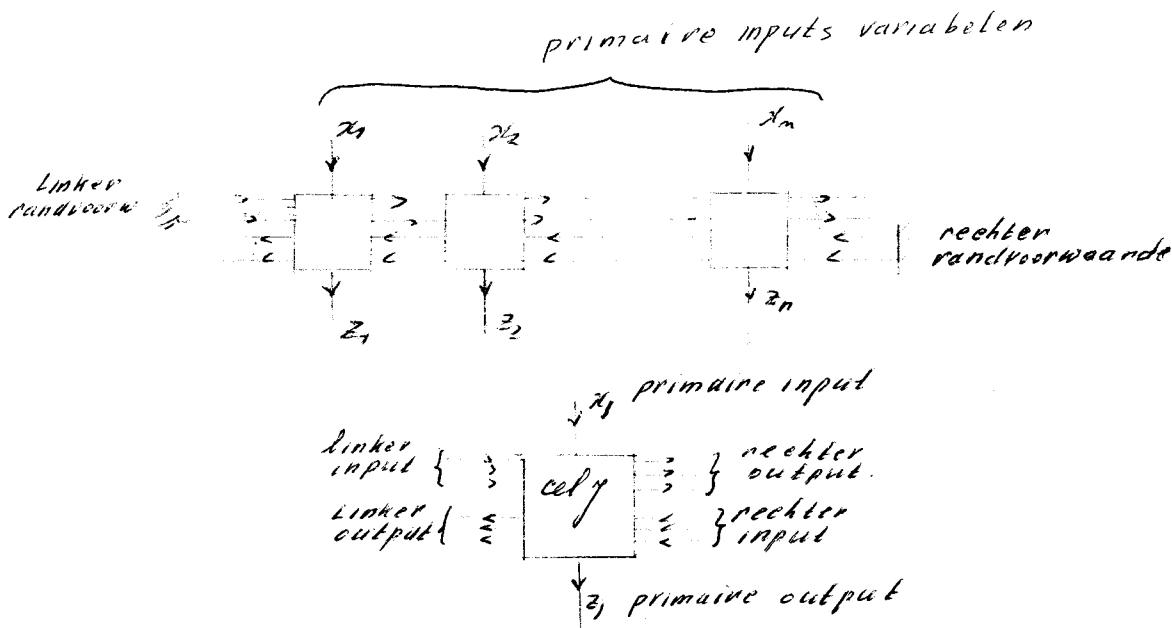 primaire inputs variabelen
x₁ x₂ xₙ
Linker
randvoorw
rechter
randvoorwaarde
z₁ z₂ zₙ
xⱼ primaire input
linker
input
rechter
output
cel j
Linker
output
rechter
input
zⱼ primaire output